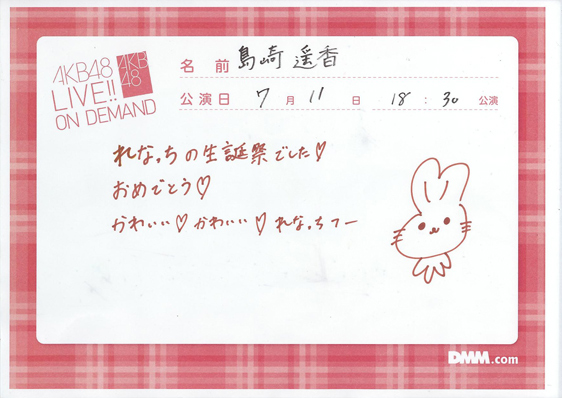 AKB48
LIVE!!
ON DEMAND
AKB
48
名前 島崎 遥香
公演日 7月11日 18:30公演
れなっちの生誕祭でした♡
おめでとう♡
かわいい♡かわいい♡れなっちつー
DMM.com